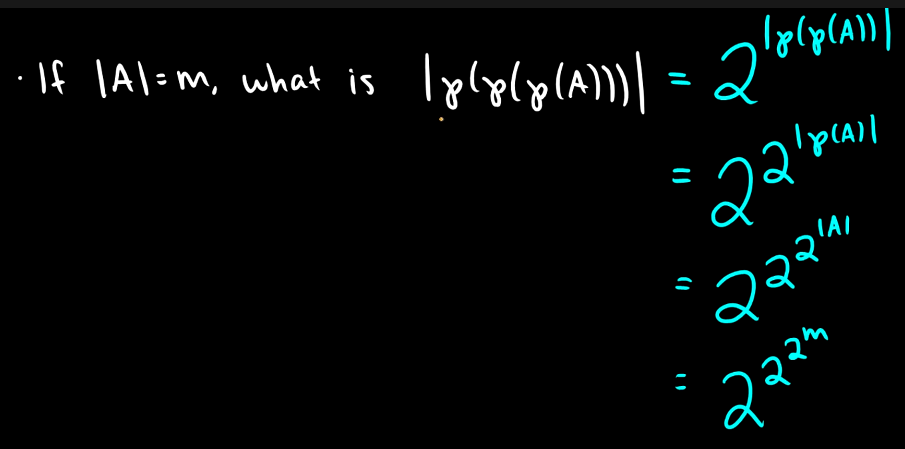 · If |A|=m, what is |℘(℘(℘(A)))| = 2^{|℘(℘(A))|}
= 2^{2^{|℘(A)|}}
= 2^{2^{2^{|A|}}}
= 2^{2^{2^m}}